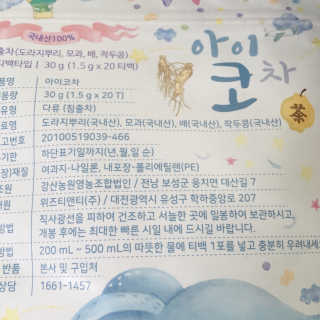 국내산100%
출차(도라지뿌리, 모과, 배, 작두콩)
티백타입 | 30 g (1.5 g x 20 티백)
아이
코차
茶
품명 아이코차
용량 30 g (1.5 g x 20 T)
유형 다류 (침출차)
료명 도라지뿌리(국내산), 모과(국내산), 배(국내산), 작두콩(국내산)
고번호 20100519039-466
기한 하단표기일까지(년,월,일 순)
)재질 여과지-나일론, 내포장-폴리에틸렌(PE)
조원 강산농원영농조합법인 / 전남 보성군 웅치면 대산길 7
원 위즈티앤티(주) / 대전광역시 유성구 학하중앙로 207
방법 직사광선을 피하여 건조하고 서늘한 곳에 밀봉하여 보관하시고,
개봉 후에는 최대한 빠른 시일 내에 드시길 바랍니다.
방법 200 mL ~ 500 mL의 따뜻한 물에 티백 1포를 넣고 충분히 우려내세요
반품 본사 및 구입처
상담 1661-1457